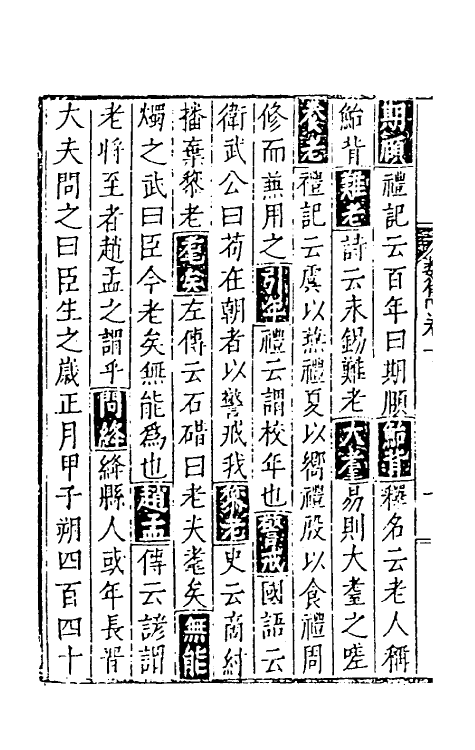 期頤禮記云百年曰期頤鮐背釋名云老人稱
鮐背難老詩云永錫難老大耋易則大耋之嗟
養老禮記云虞以燕禮夏以饗禮殷以食禮周
修而兼用之引年禮云謂校年也警戒國語云
衛武公曰苟在朝者以警戒我黎老史云商紂
播棄黎老耄矣左傳云石碏曰老夫耄矣無能
燭之武曰臣今老矣無能為也趙孟傳云諺謂
老將至者趙孟之謂乎問絳絳縣人或年長胥
大夫問之曰臣生之歲正月甲子朔四百四十